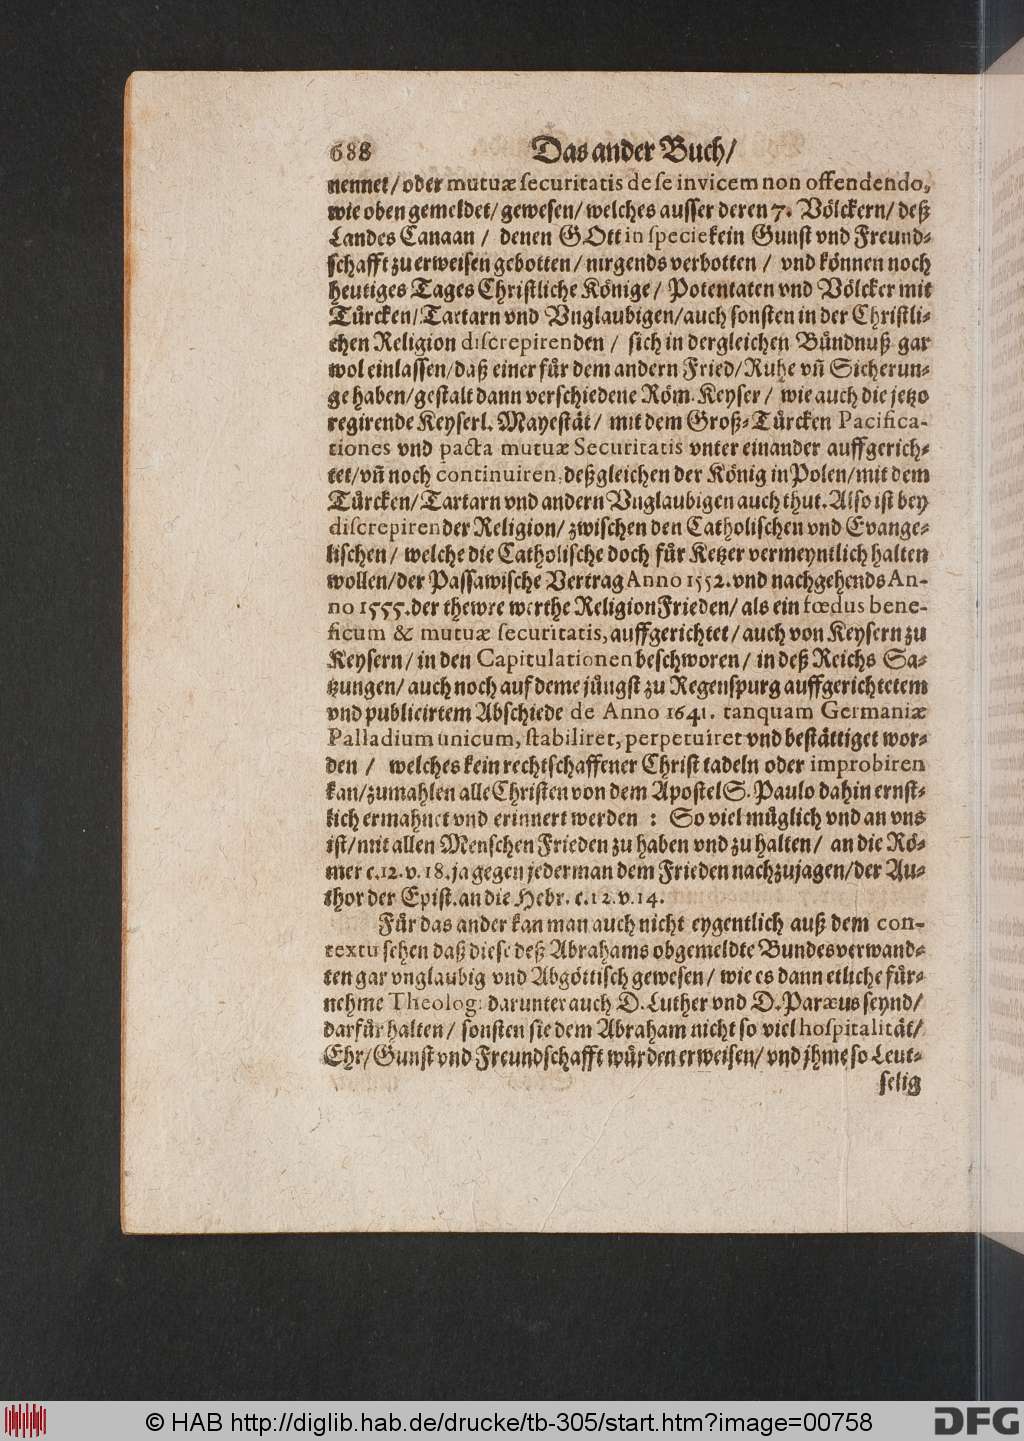 688 Das ander Buch/
nennet/ oder mutuæ securitatis de se invicem non offendendo,
wie oben gemeldet/ gewesen/ welches ausser deren 7. Völckern/ deß
Landes Canaan / denen GOtt in specie kein Gunst vnd Freund-
schafft zu erweisen gebotten/ nirgends verbotten / vnd können noch
heutiges Tages Christliche Könige/ Potentaten vnd Völcker mit
Türcken/ Tartarn vnd Vnglaubigen/ auch sonsten in der Christli-
chen Religion discrepirenden / sich in dergleichen Bündnuß gar
wol einlassen/ daß einer für dem andern Fried/ Ruhe vñ Sicherun-
ge haben/ gestalt dann verschiedene Röm. Keyser / wie auch die jetzo
regirende Keyserl. Mayestät/ mit dem Groß-Türcken Pacifica-
tiones vnd pacta mutuæ Securitatis vnter einander auffgerich-
tet/ vñ noch continuiren, deßgleichen der König in Polen/ mit dem
Türcken/ Tartarn vnd andern Vnglaubigen auch thut. Also ist bey
discrepirender Religion/ zwischen den Catholischen vnd Evange-
lischen/ welche die Catholische doch für Ketzer vermeyntlich halten
wollen/ der Passawische Vertrag Anno 1552. vnd nachgehends An-
no 1555. der thewre werthe ReligionFrieden/ als ein fœdus bene-
ficum & mutuæ securitatis, auffgerichtet/ auch von Keysern zu
Keysern/ in den Capitulationen beschworen/ in deß Reichs Sa-
tzungen/ auch noch auf deme jüngst zu Regenspurg auffgerichtetem
vnd publicirtem Abschiede de Anno 1641. tanquam Germaniæ
Palladium unicum, stabiliret, perpetuiret vnd bestättiget wor-
den / welches kein rechtschaffener Christ tadeln oder improbiren
kan/ zumahlen alle Christen von dem Apostel S. Paulo dahin ernst-
lich ermahnet vnd erinnert werden : So viel müglich vnd an vns
ist/ mit allen Menschen Frieden zu haben vnd zu halten/ an die Rö-
mer c.12. v. 18. ja gegen jederman dem Frieden nachzujagen/ der Au-
thor der Epist. an die Hebr. c.12. v.14.
Für das ander kan man auch nicht eygentlich auß dem con-
textu sehen daß diese deß Abrahams obgemeldte Bundesverwand-
ten gar vnglaubig vnd Abgöttisch gewesen/ wie es dann etliche für-
nehme Theolog: darunter auch D. Luther vnd D. Paræus seynd/
darfür halten/ sonsten sie dem Abraham nicht so viel hospitalität/
Ehr/ Gunst vnd Freundschafft würden erweisen/ vnd jhme so Leut-
selig
© HAB http://diglib.hab.de/drucke/tb-305/start.htm?image=00758
DFG